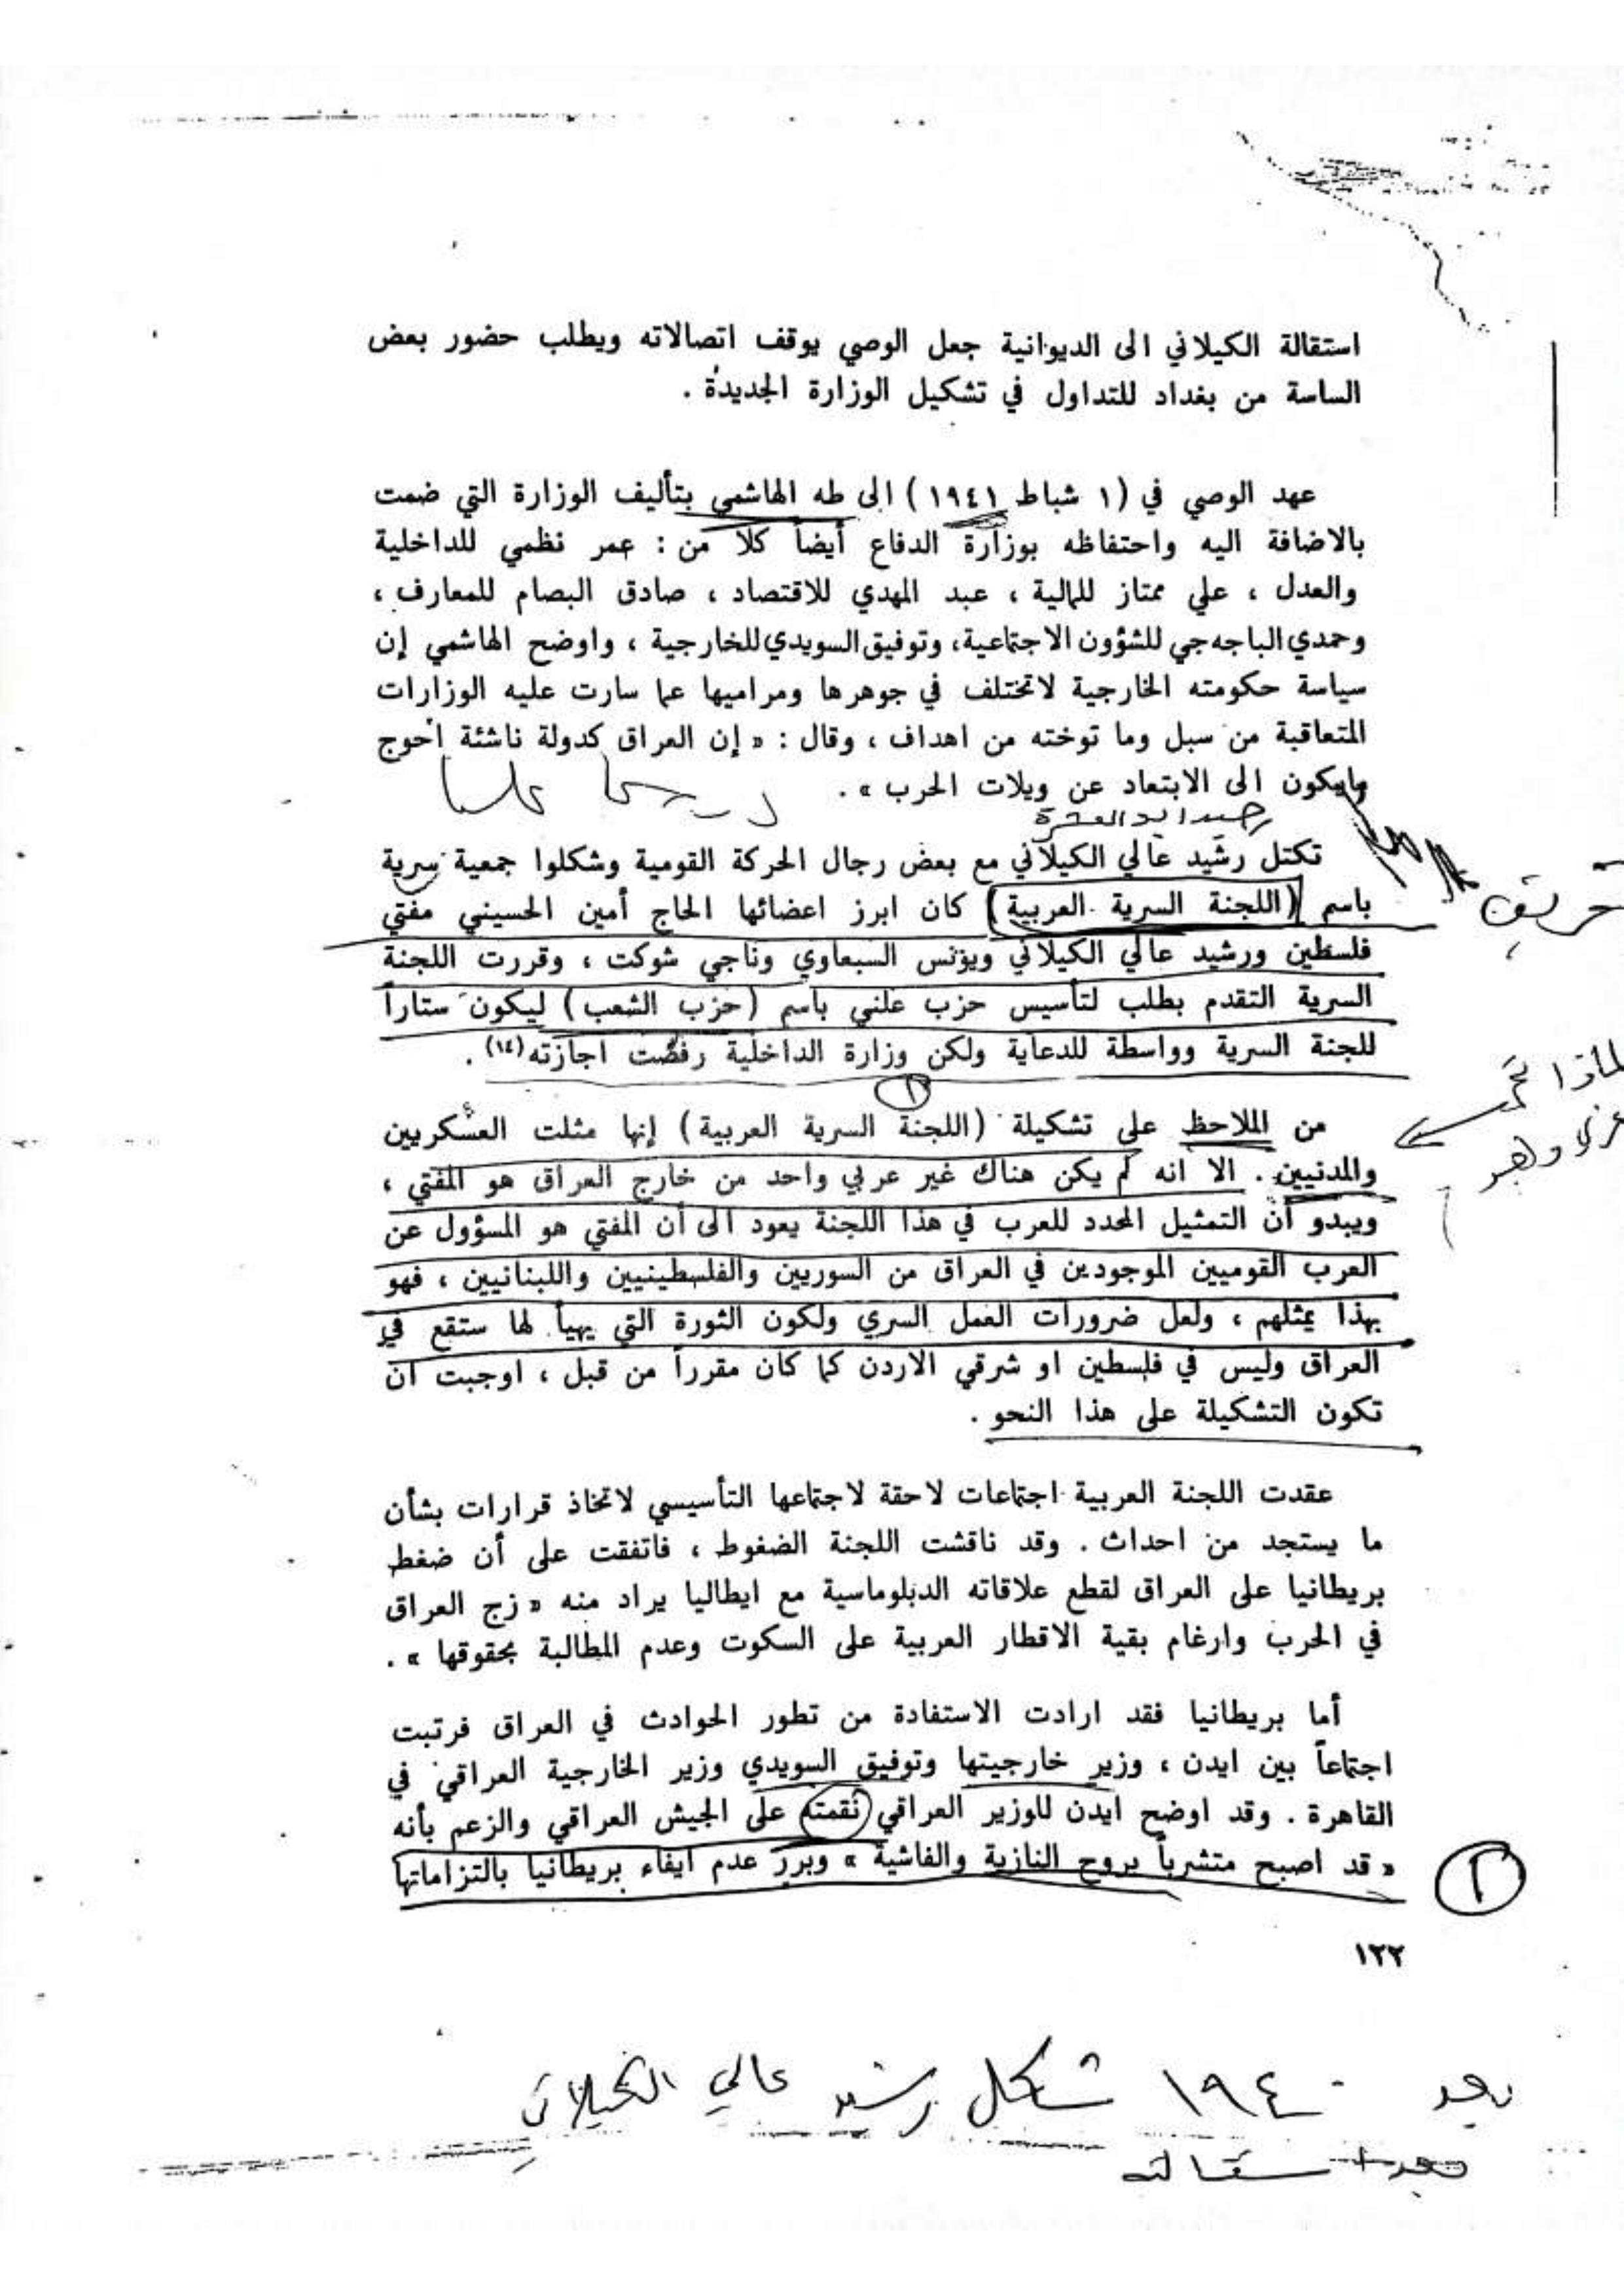 استقالة الكيلاني الى الديوانية جعل الوصي يوقف اتصالاته ويطلب حضور بعض
الساسة من بغداد للتداول في تشكيل الوزارة الجديدة .
عهد الوصي في (١ شباط ١٩٤١) الى طه الهاشمي بتأليف الوزارة التي ضمت
بالاضافة اليه واحتفاظه بوزارة الدفاع أيضاً كلا من : عمر نظمي للداخلية
والعدل ، علي ممتاز للمالية ، عبد المهدي للاقتصاد ، صادق البصام للمعارف ،
وحمدي الباجه جي للشؤون الاجتماعية، وتوفيق السويدي للخارجية ، واوضح الهاشمي إن
سياسة حكومته الخارجية لاتختلف في جوهرها ومراميها عما سارت عليه الوزارات
المتعاقبة من سبل وما توخته من اهداف ، وقال : « إن العراق كدولة ناشئة احوج
مايكون الى الابتعاد عن ويلات الحرب » .
تكتل رشيد عالي الكيلاني مع بعض رجال الحركة القومية وشكلوا جمعية سرية
باسم (اللجنة السرية العربية) كان ابرز اعضائها الحاج أمين الحسيني مفتي
فلسطين ورشيد عالي الكيلاني ويونس السبعاوي وناجي شوكت ، وقررت اللجنة
السرية التقدم بطلب لتأسيس حزب علني باسم (حزب الشعب) ليكون ستاراً
للجنة السرية وواسطة للدعاية ولكن وزارة الداخلية رفضت اجازته (١٤) .
١
من الملاحظ على تشكيلة (اللجنة السرية العربية) إنها مثلت العسكريين
والمدنيين . الا انه لم يكن هناك غير عربي واحد من خارج العراق هو المفتي ،
ويبدو أن التمثيل المحدد للعرب في هذا اللجنة يعود الى أن المفتي هو المسؤول عن
العرب القوميين الموجودين في العراق من السوريين والفلسطينيين واللبنانيين ، فهو
بهذا يمثلهم ، ولعل ضرورات العمل السري ولكون الثورة التي يهيأ لها ستقع في
العراق وليس في فلسطين او شرقي الاردن كما كان مقرراً من قبل ، اوجبت ان
تكون التشكيلة على هذا النحو .
عقدت اللجنة العربية اجتماعات لاحقة لاجتماعها التأسيسي لاتخاذ قرارات بشأن
ما يستجد من احداث . وقد ناقشت اللجنة الضغوط ، فاتفقت على أن ضغط
بريطانيا على العراق لقطع علاقاته الدبلوماسية مع ايطاليا يراد منه « زج العراق
في الحرب وارغام بقية الاقطار العربية على السكوت وعدم المطالبة بحقوقها » .
أما بريطانيا فقد ارادت الاستفادة من تطور الحوادث في العراق فرتبت
اجتماعاً بين ايدن ، وزير خارجيتها وتوفيق السويدي وزير الخارجية العراقي في
القاهرة . وقد اوضح ايدن للوزير العراقي نقمته على الجيش العراقي والزعم بأنه
« قد اصبح متشرباً بروح النازية والفاشية » وبرر عدم ايفاء بريطانيا بالتزاماتها
١٢٢
بعد ١٩٤٠ شكل رشيد عالي الكيلاني
بعد استقالته